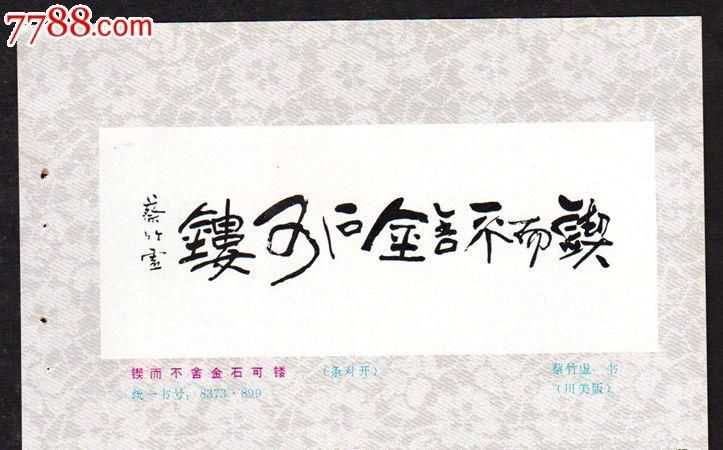 7788.com
锲而不舍金石可鏤
蔡竹虚
锲而不舍金石可镂 (条对开) 蔡竹虚 书
统一书号:8373·899 (川美版)